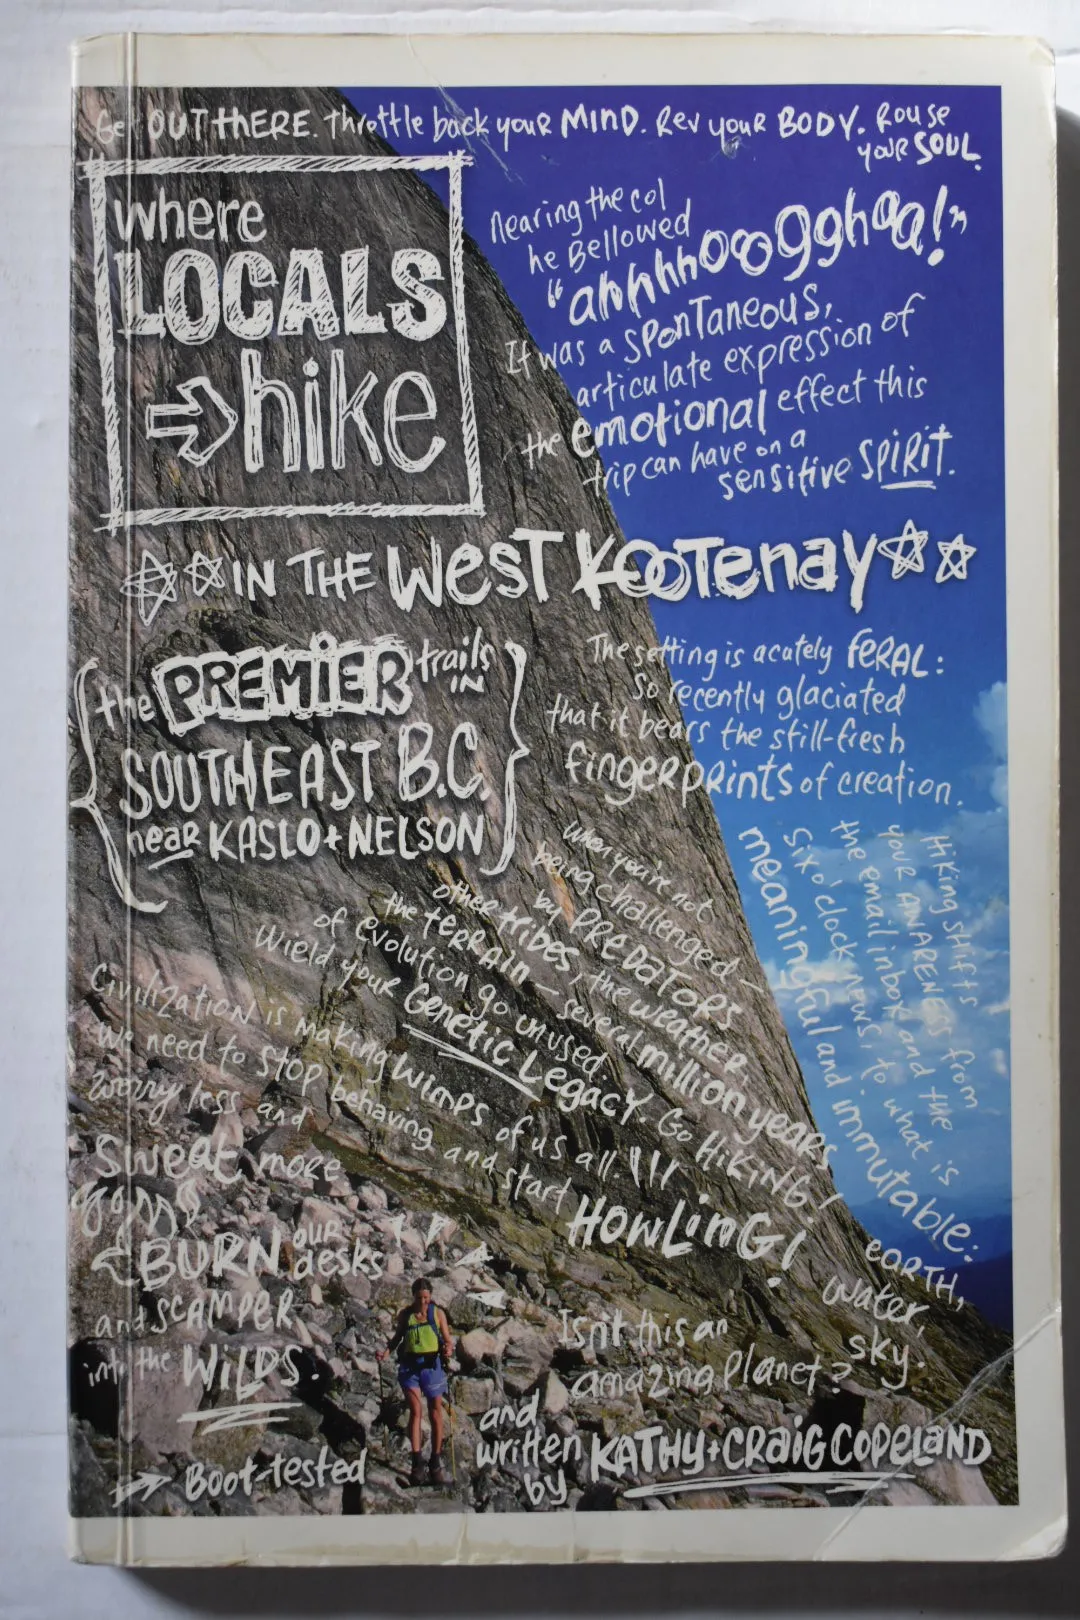 Get OUT THERE. Throttle back your MIND. Rev your BODY. Rouse
your SOUL.
where
LOCALS
hike
nearing the col
he Bellowed
"ahhhhooogghaa!"
It was a spontaneous,
articulate expression of
the emotional effect this
trip can have on a
sensitive SPIRIT.
IN THE West Kootenay
the PREMIER trails
IN
SOUTHEAST B.C.
near KASLO + NELSON
The setting is acutely FERAL:
so recently glaciated
that it bears the still-fresh
fingerprints of creation.
when you're not
being challenged—
by PREDATORS
other tribes, the weather,
the TERRAIN— several million years
of evolution go unused.
Wield your Genetic Legacy. Go HiKING!
Hiking shifts
your AWARENESS from
the email inbox and the
six o'clock news, to what is
meaningful and immutable:
EARTH,
water,
sky.
Civilization is making wimps of us all.
We need to stop behaving and start
HOWLinG!
worry less and
Sweat more
BURN our desks
and SCAMPER
into the WILDS.
Isn't this an
amazing planet?
Boot-tested
and
written
by
KATHY + CRAIG COPELAND